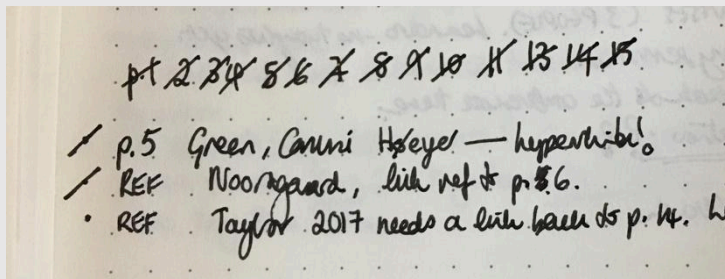 p1 2 3 4 5 6 7 8 9 10 11 13 14 15
p.5 Green, Canini Høeyer — hyperlink!
REF Noorgaard, link ref to p. 6.
REF Taylor 2017 needs a link back to p. 14.